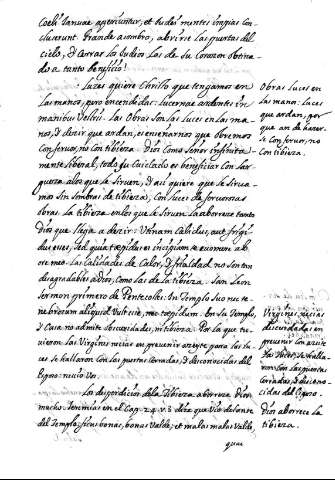 Coeli Januae aperiuntur, et Iudeis mentes impias con-
cluserunt. Grande asombro, abrirse las puertas del
cielo, y cerrar los Iudios las de su Corazon obstina-
do a tanto beneficio!
Luzes quiere Christo que tengamos en
las manos, pero encendidas: lucernae ardentes in
manibus vestris. Las Obras son las luces en las ma-
nos, y dezir que ardan, es enseñarnos que obremos
con fervor, no con tibieza. Dios como Señor infinita-
mente liberal, todo su cuidado es beneficiar con lar-
gueza a los que le sirven, y assi quiere que le sirva-
mos sin sombras de tibieza, con luces de fervorosas
obras. la tibieza en los que le sirven la aborrece tanto
Dios que llega a dezir: Utinam calidus, aut frigi-
dus esses, sed quia tepidus es incipiam te evomere ab
ore meo. Las calidades de Calor, y frialdad no son tan
desagradables a Dios, como las de la tibieza. San Leon
Sermon primero de Pentecostes: In Templo suo nec te-
nebrosum aliquid vult esse, nec tepidum. En su Templo,
y Casa no admite obscuridades, ni tibieza. Por la que tu-
vieron las Virgines necias en prevenir azeyte para las lu-
ces se hallaron con las puertas cerradas, y desconocidas del
Esposo: nescio vos.
Los desperdicios de la tibieza aborrece Dios
mucho. Jeremias en el Cap. 24. v. 2. dize que vio delante
del Templo: ficus bonas, bonas valde, et malas malas valde
quae
Obras luces en
las manos: luces
que ardan, por
que an de hazer-
se con fervor, no
con tibieza.
Virgines necias
descuidadas en
prevenir con azeite
las luces, se halla-
ron con las puertas
cerradas, y descono-
cidas del Esposo.
Dios aborrece la
tibieza.